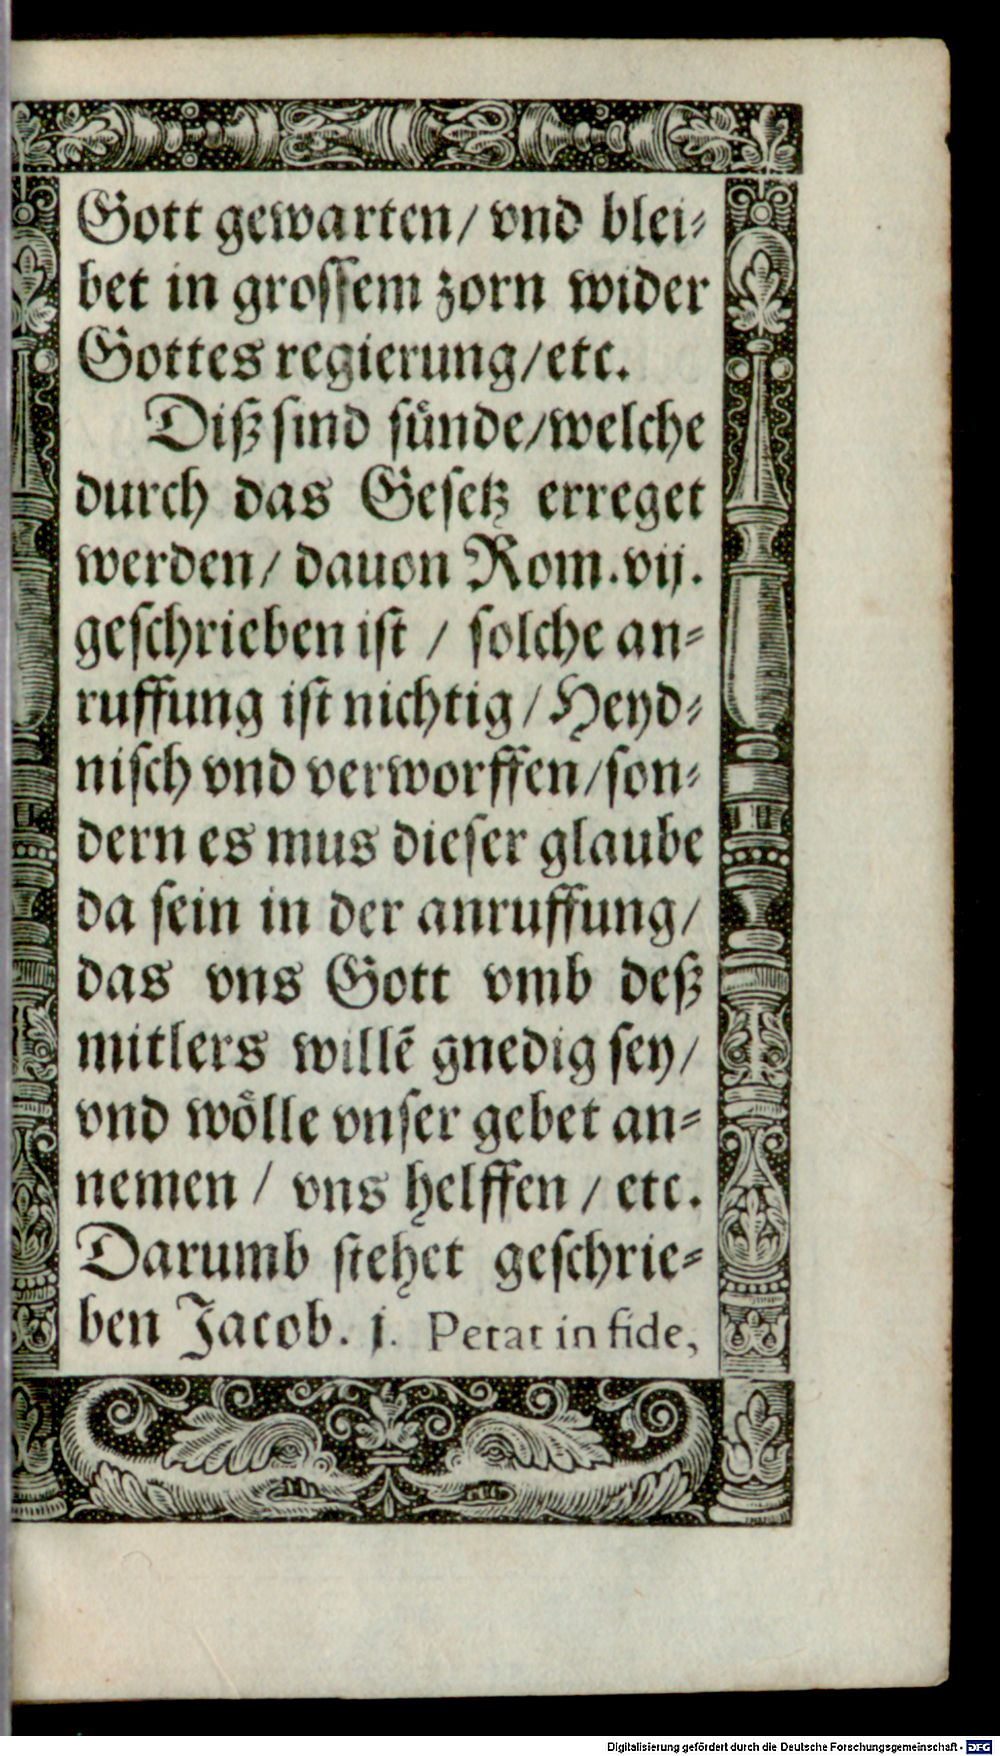 Gott gewarten/ vnd blei⸗
bet in grossem zorn wider
Gottes regierung/etc.
Diß sind sünde/welche
durch das Gesetz erreget
werden/ dauon Rom. vij.
geschrieben ist / solche an⸗
ruffung ist nichtig / Heyd⸗
nisch vnd verworffen/son⸗
dern es mus dieser glaube
da sein in der anruffung/
das vns Gott vmb deß
mitlers willē gnedig sey/
vnd wölle vnser gebet an⸗
nemen / vns helffen / etc.
Darumb stehet geschrie⸗
ben Jacob. j. Petat in fide,
Digitalisierung gefördert durch die Deutsche Forschungsgemeinschaft - DFG